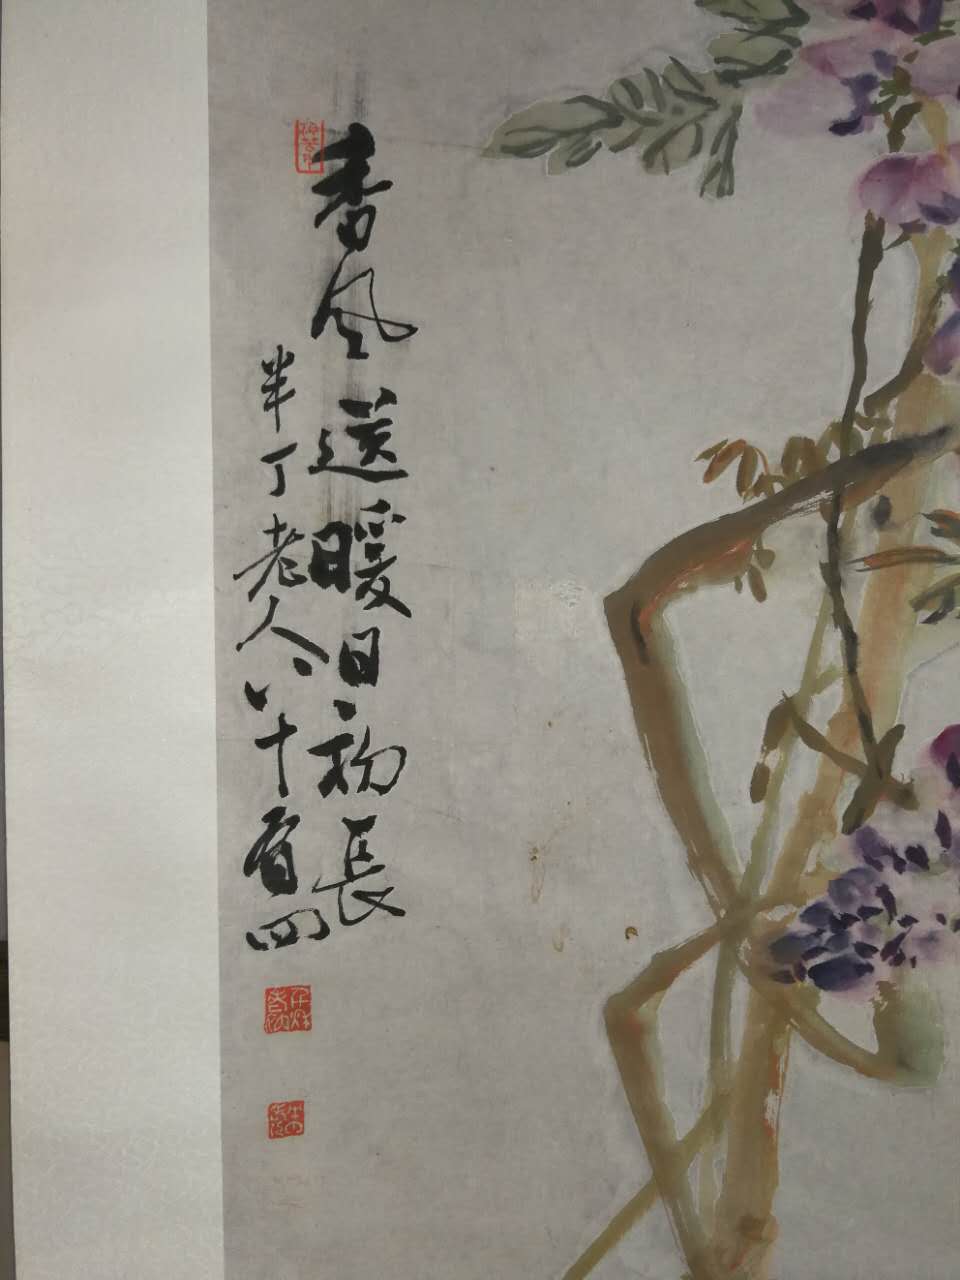 香風送暖日初長
半丁老人八十有四